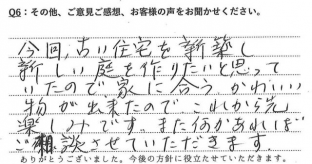 Q6：その他、ご意見ご感想、お客様の声をお聞かせください。
今回、古い住宅を新築し
新しい庭を作りたいと思って
いたので家に合うかわいい
物が出来たので これから先
楽しみです。また何かあれば
ご相談させていただきます
ありがとうございました。今後の方針に役立たせていただきます。